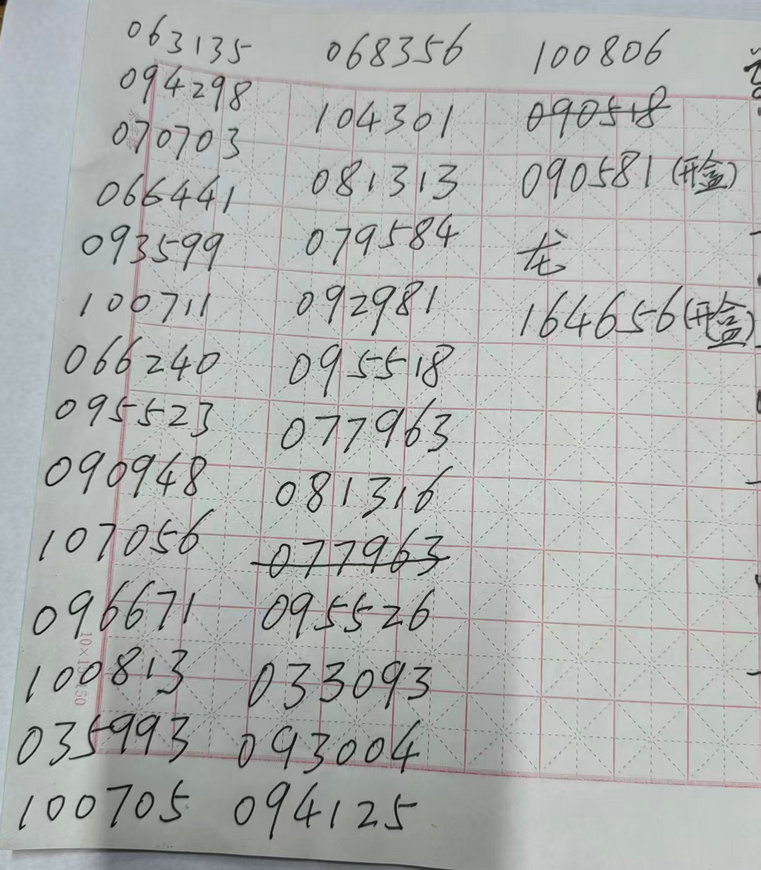 063135
094298
070703
066441
093599
100711
066240
095523
090948
107056
096671
100813
035993
100705
068356
104301
081313
079584
092981
095518
077963
081316
077963
095526
033093
093004
094125
100806
090518
090581(开盒)
龙
164656(开盒)